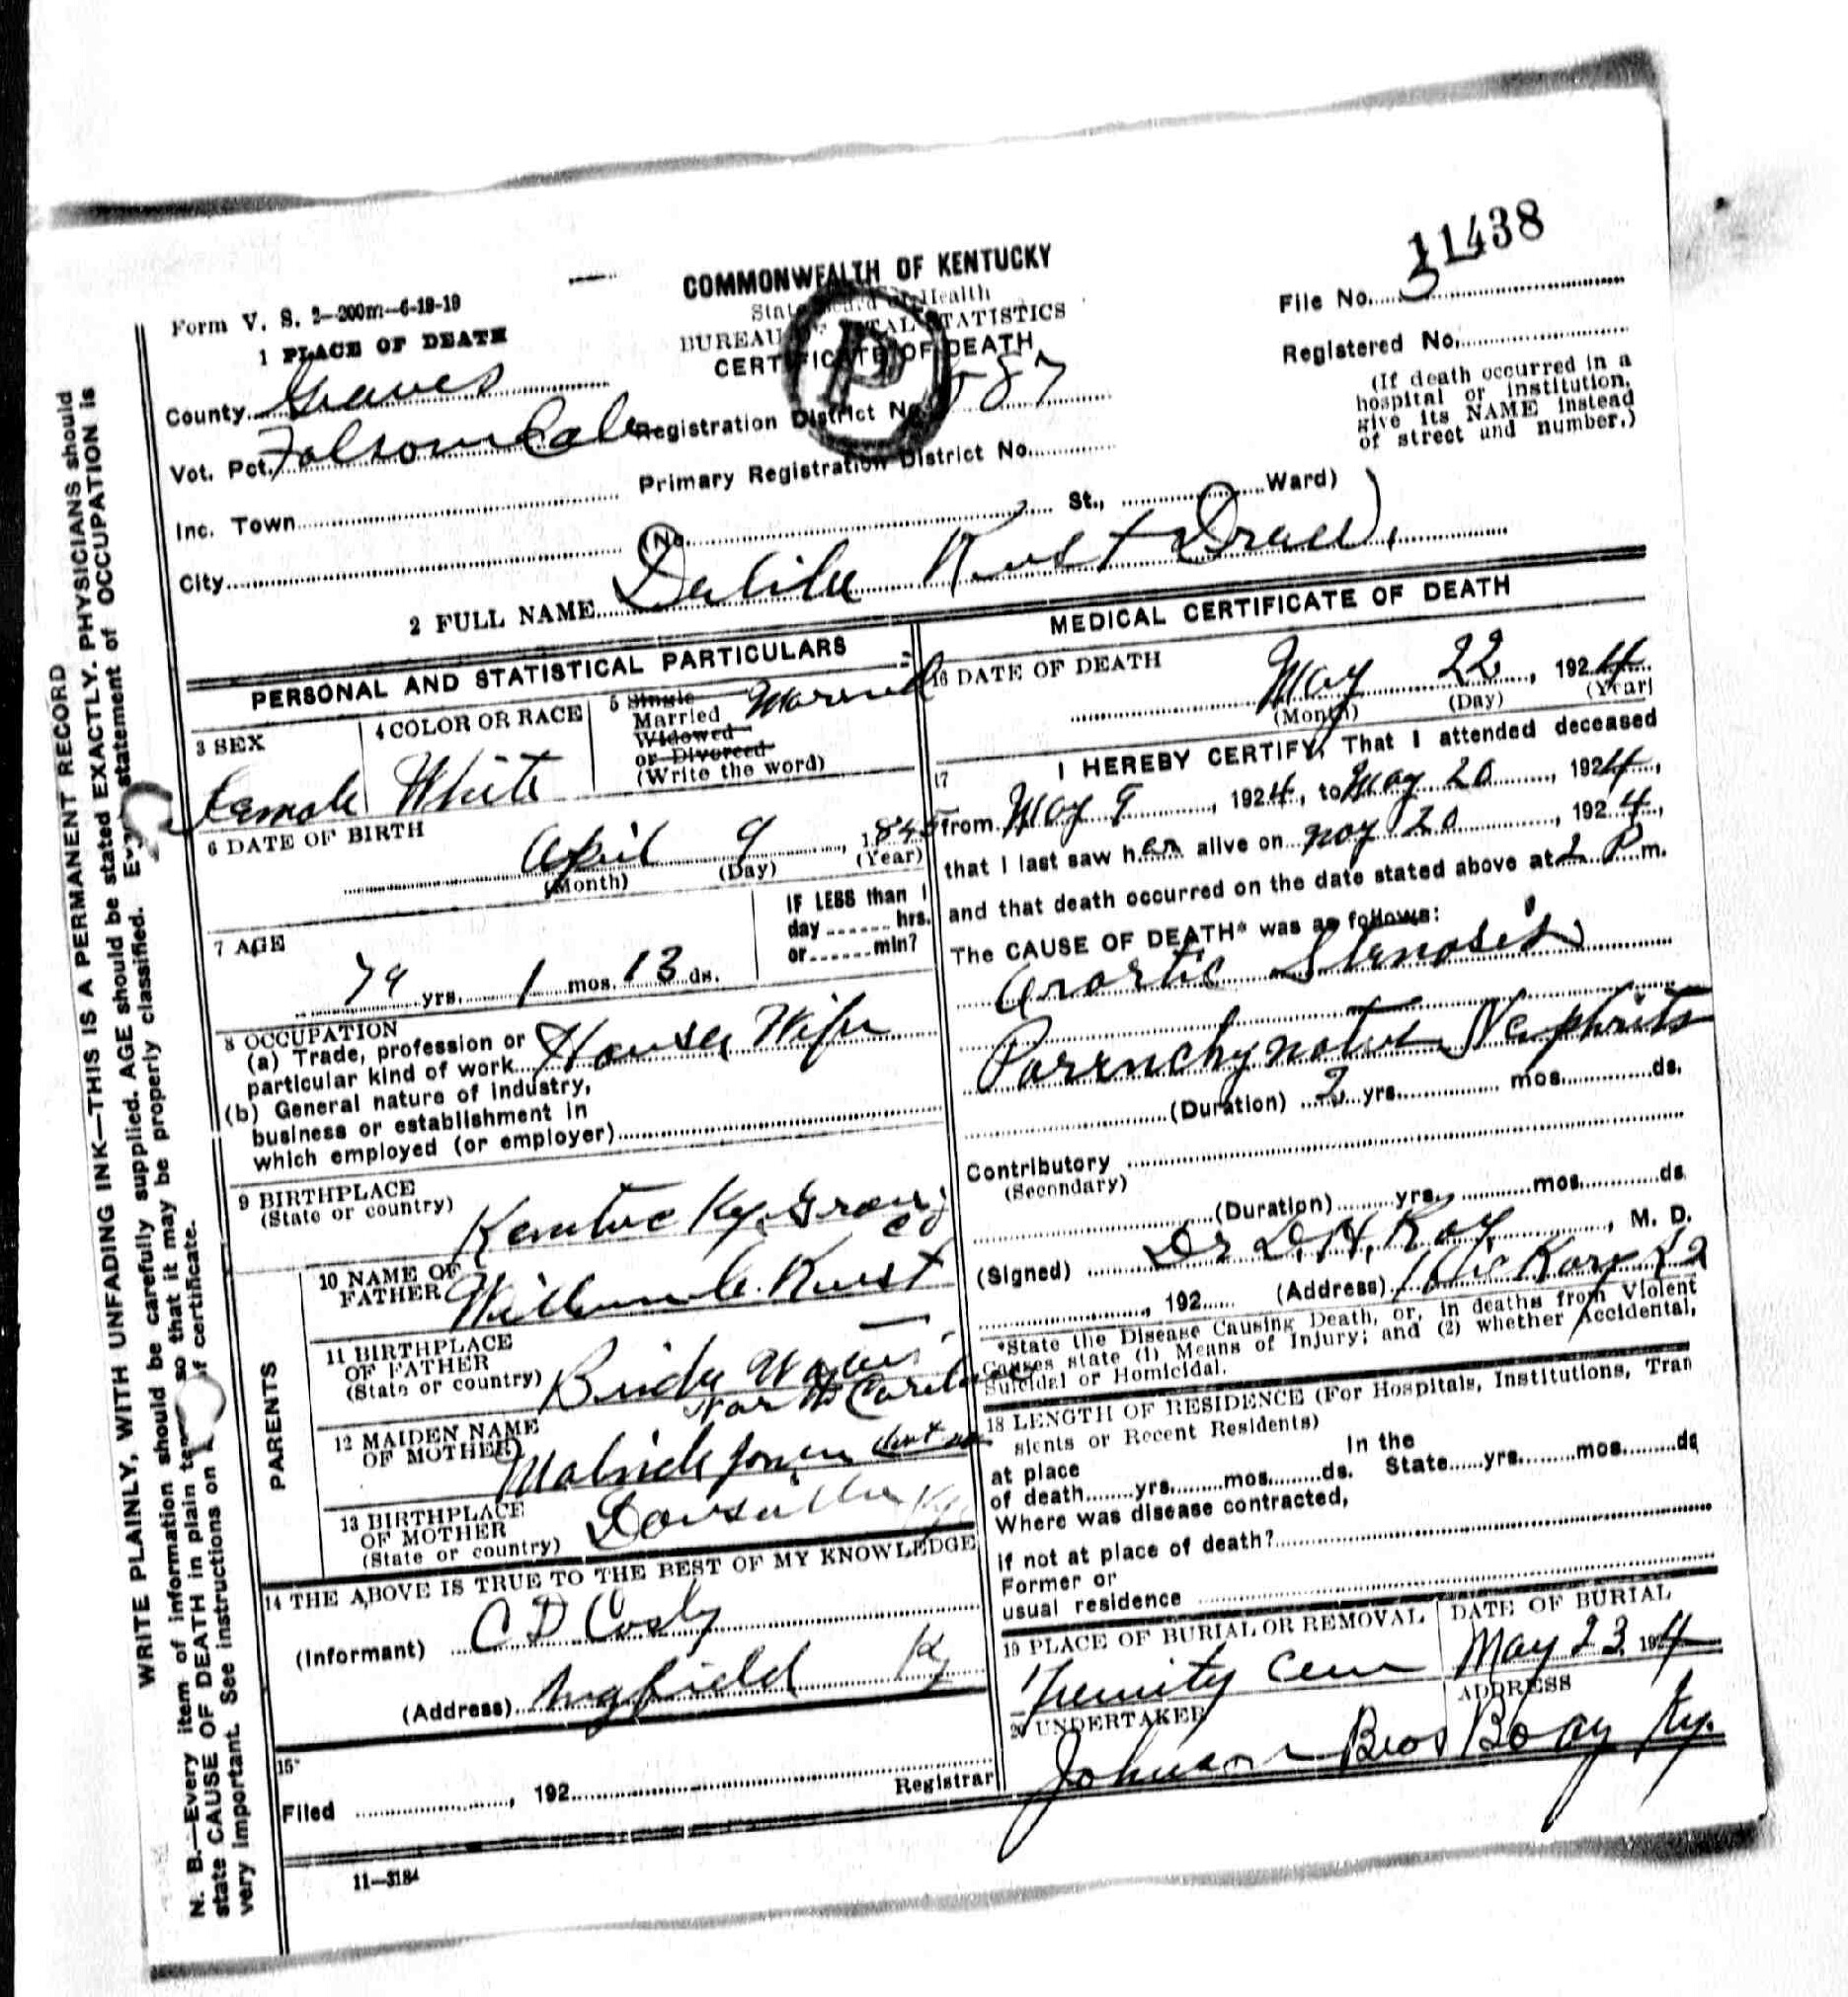 11438
Form V. S. 2—200m—6-19-19
COMMONWEALTH OF KENTUCKY
State Board of Health
BUREAU OF VITAL STATISTICS
CERTIFICATE OF DEATH
File No.
Registered No.
(If death occurred in a
hospital or institution,
give its NAME instead
of street and number.)
1 PLACE OF DEATH
County Graves
Vot. Pct. Folsomdale
Registration District No. 587
Inc. Town
Primary Registration District No.
City
(No. St., Ward)
2 FULL NAME Delila Rust Drew
PERSONAL AND STATISTICAL PARTICULARS
3 SEX
Female
4 COLOR OR RACE
White
5 Single
Married
Widowed
or Divorced
(Write the word)
6 DATE OF BIRTH
April 9, 1845
(Month) (Day) (Year)
7 AGE
79 yrs. 1 mos. 13 ds.
IF LESS than 1
day ...... hrs.
or ...... min?
8 OCCUPATION
(a) Trade, profession or
particular kind of work House Wife
(b) General nature of industry,
business or establishment in
which employed (or employer)
9 BIRTHPLACE
(State or country)
Kentucky
PARENTS
10 NAME OF
FATHER Rust
11 BIRTHPLACE
OF FATHER
(State or country)
North
12 MAIDEN NAME
OF MOTHER
13 BIRTHPLACE
OF MOTHER
(State or country)
Ky
14 THE ABOVE IS TRUE TO THE BEST OF MY KNOWLEDGE
(Informant) C D
(Address) Ky
15
Filed , 192 Registrar
11—3184
MEDICAL CERTIFICATE OF DEATH
16 DATE OF DEATH
May 22, 1924
(Month) (Day) (Year)
17 I HEREBY CERTIFY, That I attended deceased
from May 9, 1924, to May 20, 1924,
that I last saw her alive on May 20, 1924,
and that death occurred on the date stated above at 2 P m.
The CAUSE OF DEATH* was as follows:
Arortic Stenosis
(Duration) 2 yrs. mos. ds.
Contributory
(Secondary)
(Duration) yrs. mos. ds
(Signed) Dr D. H. Ray, M. D.
, 192 (Address)
*State the Disease Causing Death, or, in deaths from Violent
Causes state (1) Means of Injury; and (2) whether Accidental,
Suicidal or Homicidal.
18 LENGTH OF RESIDENCE (For Hospitals, Institutions, Tran
sients or Recent Residents)
at place In the
of death yrs. mos. ds. State yrs. mos. ds
Where was disease contracted,
if not at place of death?
Former or
usual residence
19 PLACE OF BURIAL OR REMOVAL
Trinity Cem
DATE OF BURIAL
May 23, 1924
20 UNDERTAKER
Johnson Bros
ADDRESS
Boaz Ky.
WRITE PLAINLY, WITH UNFADING INK—THIS IS A PERMANENT RECORD
N. B.—Every item of information should be carefully supplied. AGE should be stated EXACTLY. PHYSICIANS should
state CAUSE OF DEATH in plain so that it may be properly classified. statement of OCCUPATION is
very important. See instructions on of certificate.